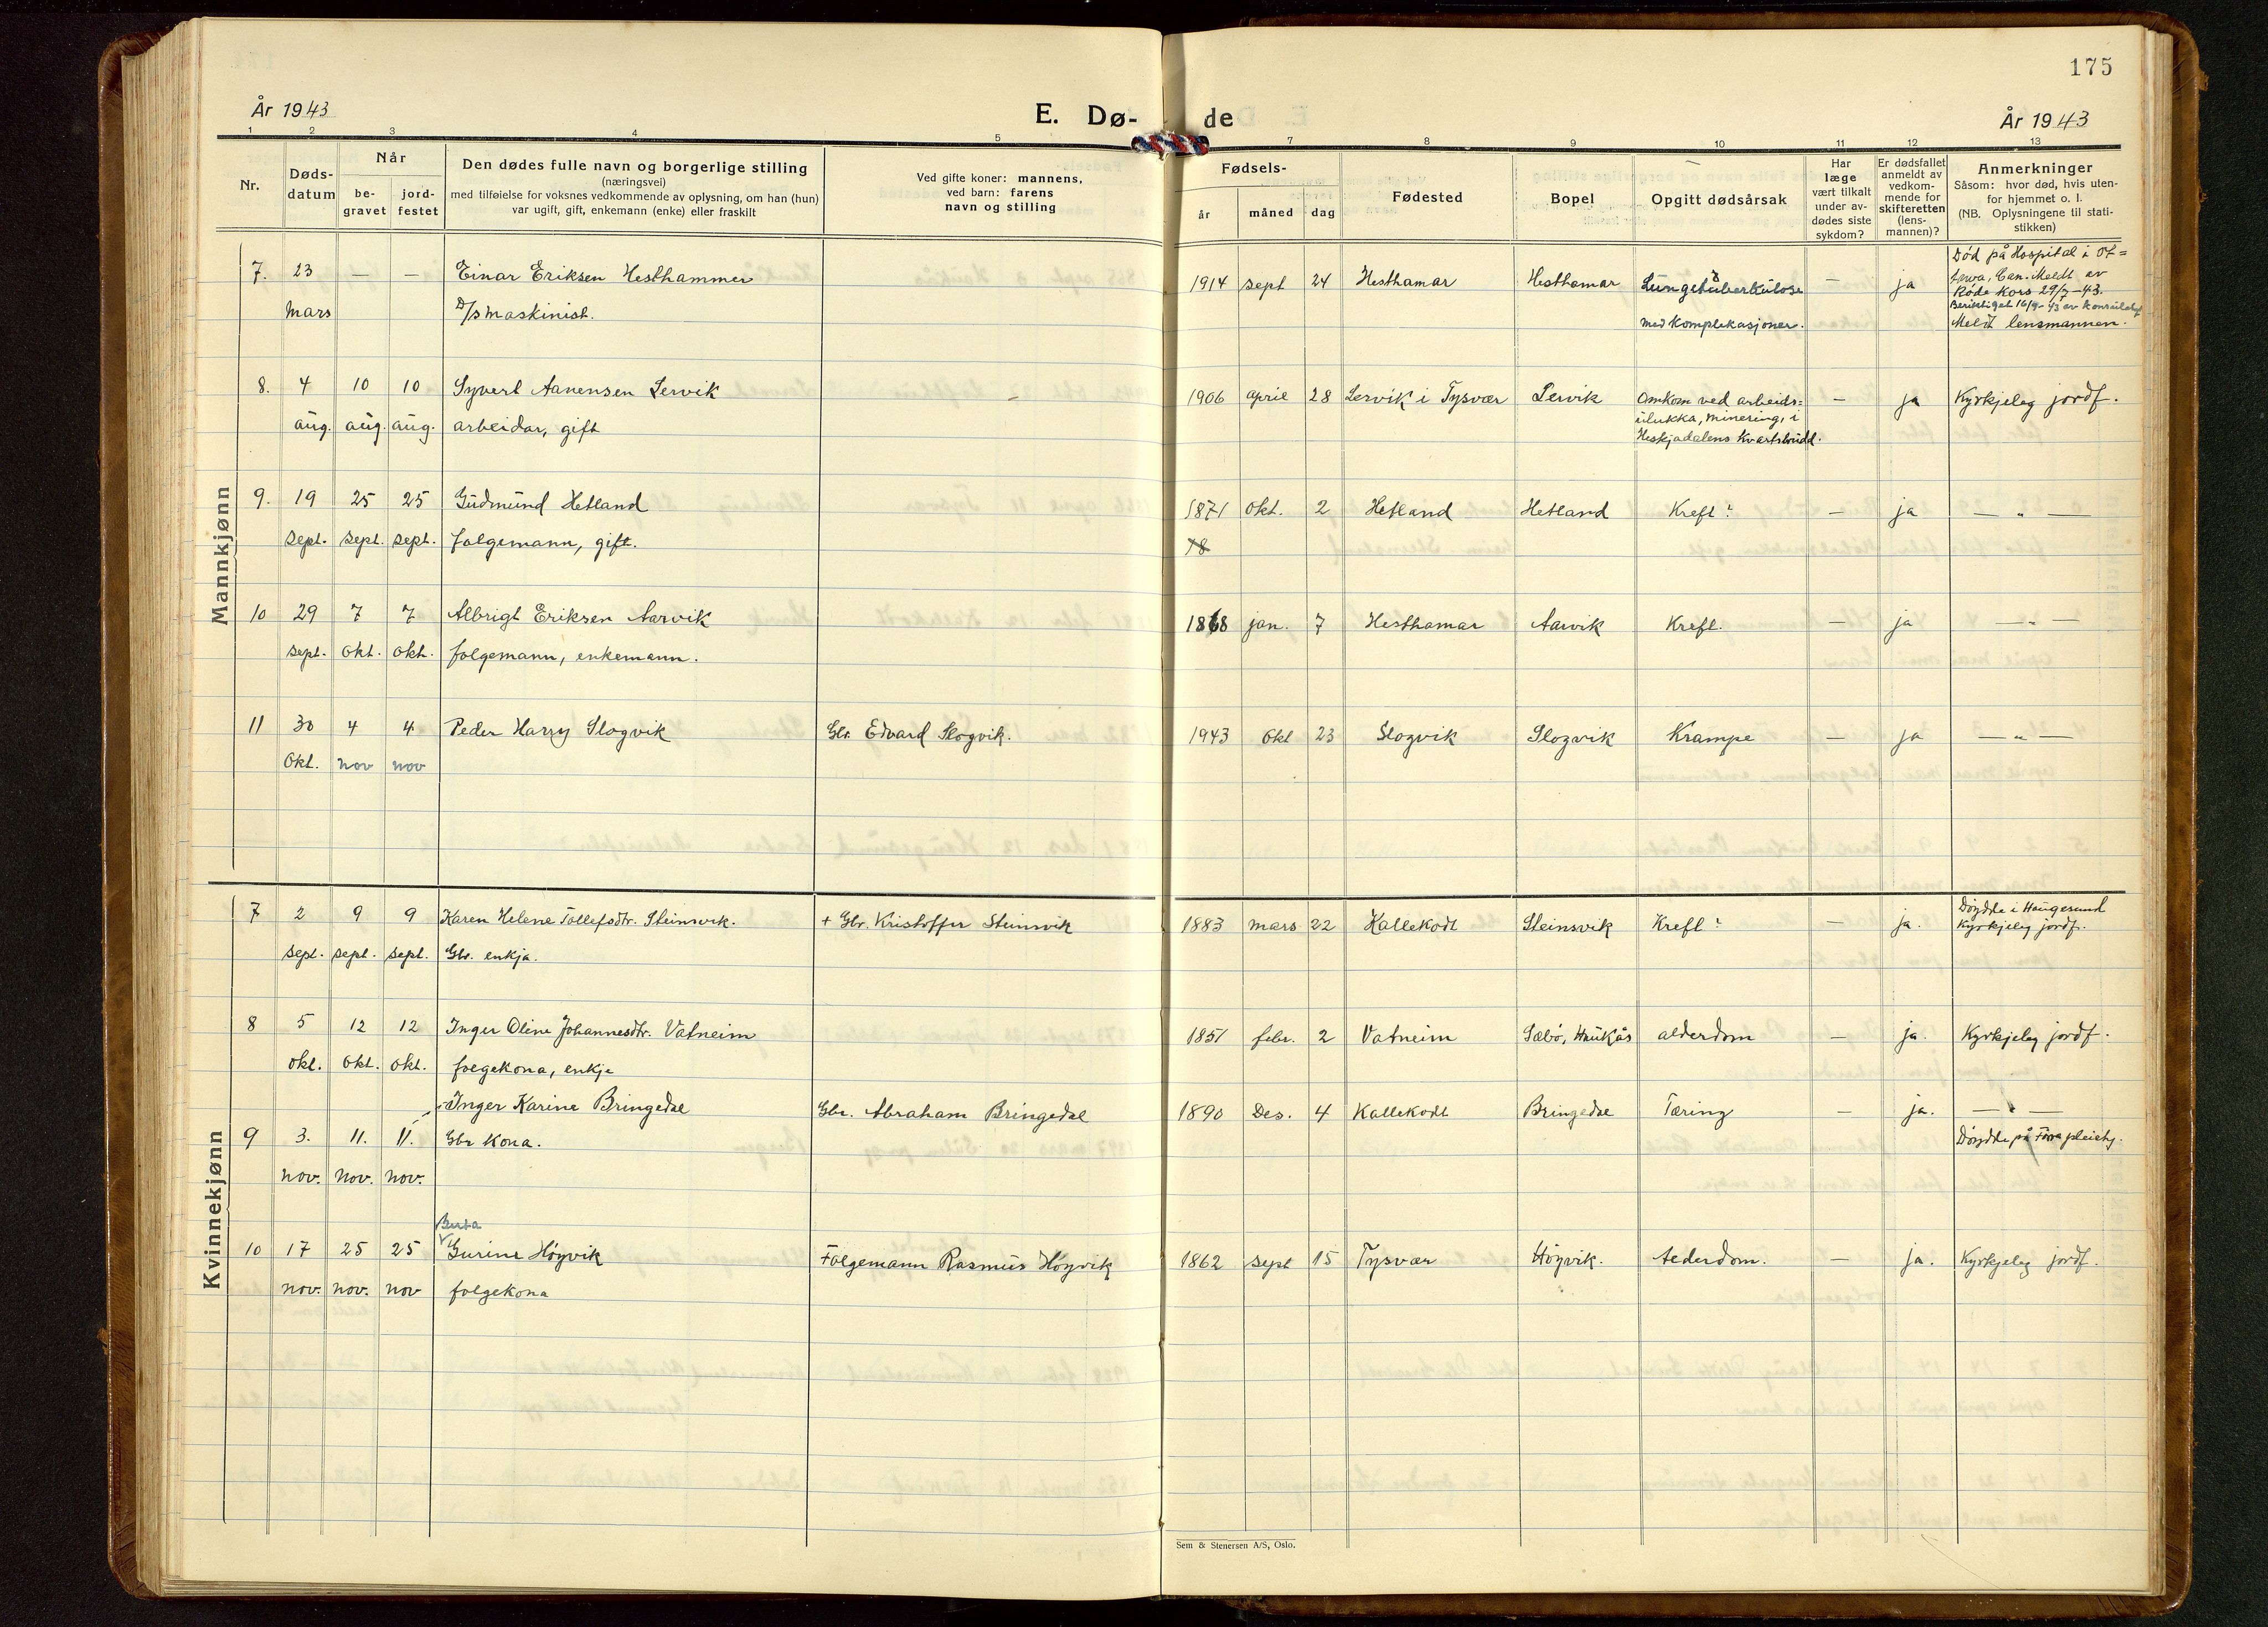 175
År 1943
E. Dø-
de
År 1943
1 2 3 4 5 7 8 9 10 11 12 13
Nr.
Døds-
datum
Når
be-
gravet
jord-
festet
Den dødes fulle navn og borgerlige stilling
(næringsvei)
med tilføielse for voksnes vedkommende av oplysning, om han (hun)
var ugift, gift, enkemann (enke) eller fraskilt
Ved gifte koner: mannens,
ved barn: farens
navn og stilling
Fødsels-
år
måned
dag
Fødested
Bopel
Opgitt dødsårsak
Har
læge
vært tilkalt
under av-
dødes siste
sykdom?
Er dødsfallet
anmeldt av
vedkom-
mende for
skifteretten
(lens-
mannen)?
Anmerkninger
Såsom: hvor død, hvis uten-
for hjemmet o. l.
(NB. Oplysningene til stati-
stikken)
Mannkjønn
7. 23 — — Einar Eriksen Hesthammer 1914 sept 24 Hesthamar Hesthamar Lungetuberkulose — ja
mars D/s maskinist. med komplikasjoner.
Død på Hospital i Ot=
tawa, Can. Meldt av
Røde Kors 29/7-43.
Beriktiget 16/9-43 av konsulatet
Meldt lensmannen.
8. 4 10 10 Syvert Aanensen Lervik — 1906 april 28 Lervik i Tysvær Lervik Omkom ved arbeids= — ja Kyrkjeleg jordf.
aug. aug. aug. arbeidar, gift ulukka, minering, i
Heskjadalens Kvartsbrudd.
9. 19 25 25 Gudmund Hetland 1871 okt. 2 Hetland Hetland Kreft? — ja — " —
sept. sept. sept. folgemann, gift. 78
10 29 7 7 Albrigt Eriksen Aarvik 1868 jan. 7 Hesthamar Aarvik Kreft. — ja — " —
sept. okt. okt. folgemann, enkemann.
11 30 4 4 Peder Harry Slogvik Gbr. Edvard Slogvik. 1943 okt 23 Slogvik Slogvik Krampe — ja — " —
okt. nov nov
Kvinnekjønn
7 2 9 9 Karen Helene Tollefsdtr. Steinsvik. + Gbr. Kristoffer Steinsvik 1883 mars 22 Kallekodt Steinsvik Kreft? — ja. Döydde i Haugesund
Kyrkjeleg jordf.
sept. sept. sept. Gbr. enkja.
8 5 12 12 Inger Oline Johannesdtr. Vatneim 1851 febr. 2 Vatneim Sæbö, Haukås alderdom — ja. Kyrkjeleg jordf.
okt. okt. okt. folgekona, enkje
Inger Karine Bringedal Gbr. Abraham Bringedal 1890 Des. 4 Kallekodt Bringedal Tæring — ja. — " —
9 3. 11. 11. Gbr kona. Döydde på Förre pleiehj.
nov. nov. nov.
Berta
10 17 25 25 Gurine Höyvik Folgemann Rasmus Höyvik 1862 sept 15 Tysvær Höyvik. Alderdom. — ja. Kyrkjeleg jordf.
nov. nov. nov folgekona
Sem & Stenersen A/S, Oslo.